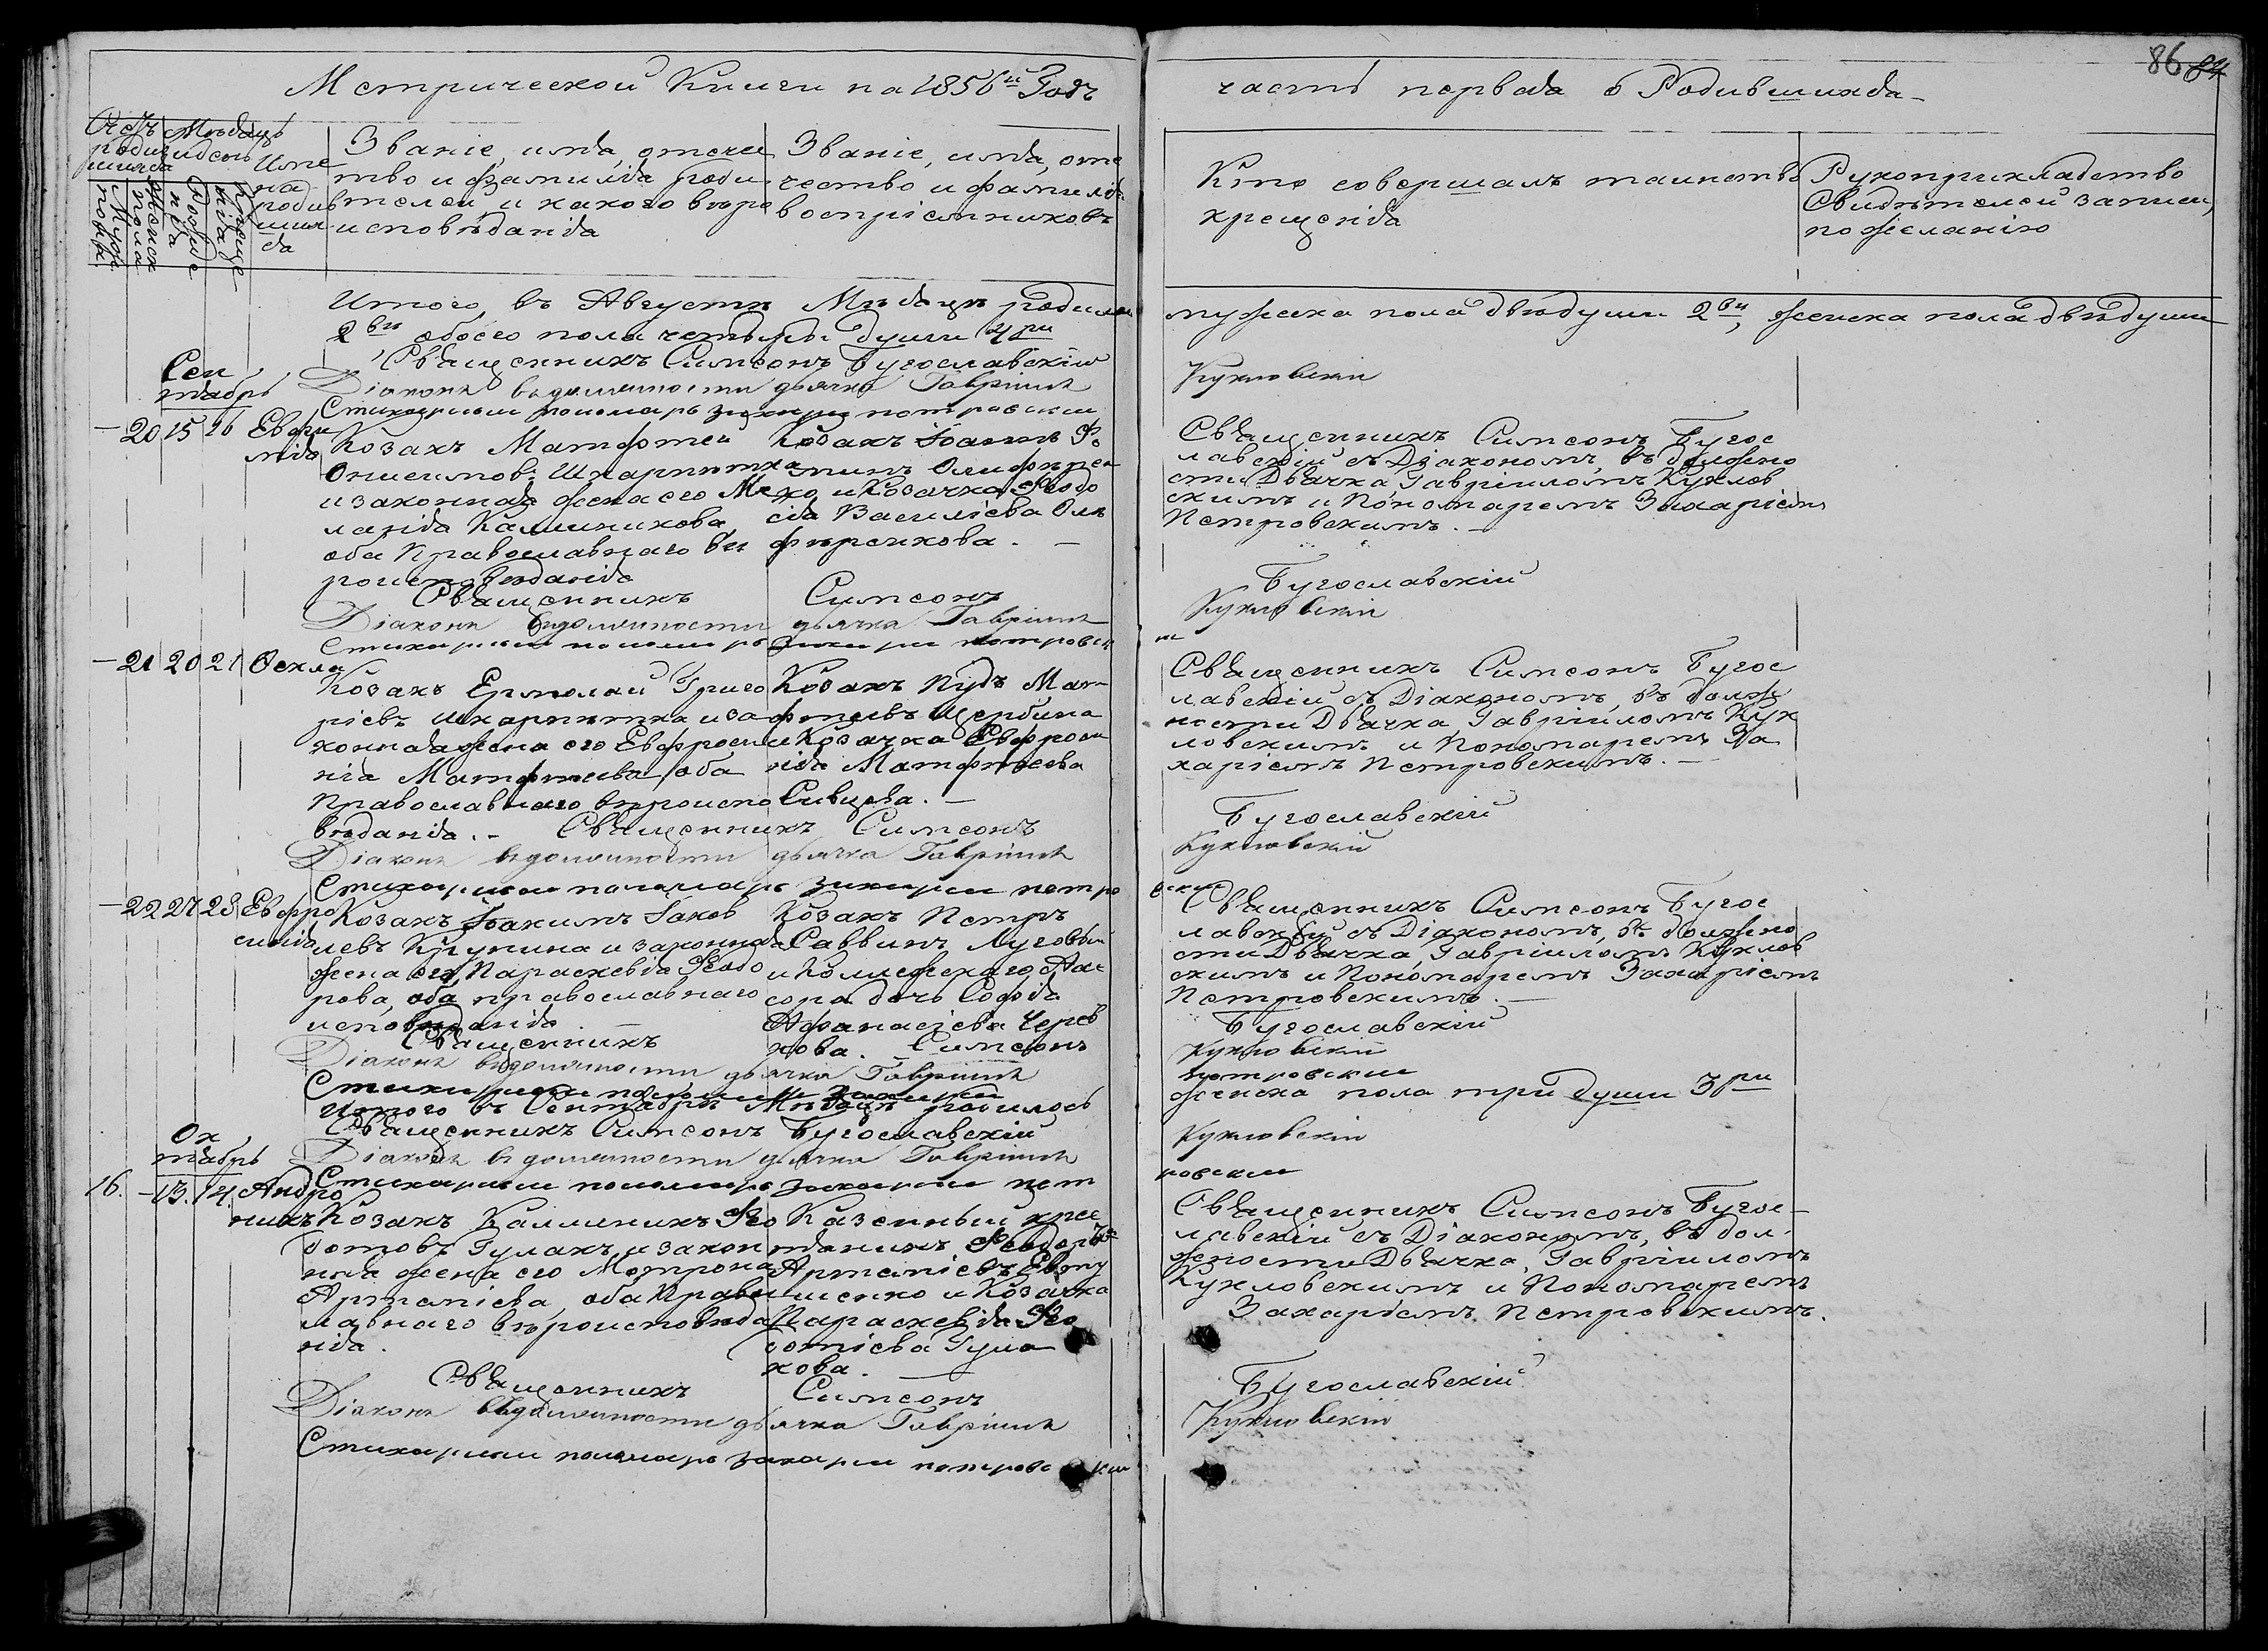 Метрической Книги на 1856й Годъ
часть первая о Родившихся
86 84
Счетъ родившихся
Мѣсяцъ и день
Мужеск. пола
Женск. пола
Рожденія
Крещенія
Имена родившихся
Званіе, имя, отече
ство и фамилія роди
телей и какого вѣро
исповѣданія
Званіе, имя, оте
чество и фамилія
воспріемниковъ
Кто совершалъ таинство
крещенія
Рукоприкладство
Свидѣтелей записи,
по желанію
Итого въ Августѣ Мѣсяцѣ родилось мужеска пола двѣ души 2ви, женска пола двѣ души
2ви обоего пола четыри души 4ри
Священникъ Симеонъ Бугославскій
Діаконъ въ должности дьячка Гавріилъ Кукловскій
Стихарный пономарь Захарій петровскій
Сен
тябрь
— 20 15 16 Евфи
мія
Козакъ Матфтей
Онисимовъ Шкарпитка
и законная жена его Ме
ланія Каллиникова,
оба Православнаго вѣ
роисповѣданія
Козакъ Іоаннъ Фо
минъ Олифирен
ко и Козачка Феодо
сія Василіева Оли
фиренкова. —
Священникъ Симеонъ Бугос
лавскій съ Діакономъ, въ должно
сти Дьячка Гавріиломъ Куклов
скимъ и Пономаремъ Захаріемъ
Петровскимъ. —
Священникъ Симеонъ Бугославскій
Діаконъ въ должности дьячка Гавріилъ Кукловскій
Стихарный пономарь Захарій петровскій
— 21 20 21 Фекла
Козакъ Ермолай Григо
ріевъ Шкарпитка и за
конная жена его Евфроси
нія Матфтеева, оба
Православнаго вѣроиспо
вѣданія. —
Козакъ Пудъ Мат
фтеевъ Щербина
и Козачка Евфроси
нія Матфтеева
Сивцева. —
Священникъ Симеонъ Бугос
лавскій съ Діакономъ, въ долж
ности Дьячка Гавріиломъ Кук
ловскимъ и Пономаремъ За
харіемъ Петровскимъ. —
Священникъ Симеонъ Бугославскій
Діаконъ въ должности дьячка Гавріилъ Кукловскій
Стихарный пономарь Захарій петровскій
— 22 27 28 Евфро
синія
Козакъ Іоакимъ Іаков
левъ Крупина и законная
жена его Параскевія Феодо
рова, оба православнаго
исповѣданія. —
Козакъ Петръ
Саввинъ Луговый
и Коллежскаго Ас
сора дочь Софія
Афанасіева Черев
кова.
Священникъ Симеонъ Бугос
лавскій съ Діакономъ, въ должно
сти Дьячка, Гавріиломъ Куклов
скимъ и Пономаремъ Захаріемъ
Петровскимъ. —
Священникъ Симеонъ Бугославскій
Діаконъ въ должности дьячка Гавріилъ Кукловскій
Стихарный пономарь Захарій петровскій
Итого въ Сентябрѣ Мѣсяцѣ родилось женска пола три души 3ри
Священникъ Симеонъ Бугославскій
Діаконъ въ должности дьячка Гавріилъ Кукловскій
Стихарный пономарь Захарій петровскій
Ок
тябрь
16. — 13. 14. Андро
никъ
Козакъ Каллиникъ Фео
дотовъ Гулакъ и закон
ная жена его Матрона
Артеміева, оба Правос
лавнаго вѣроисповѣда
нія.
Казенный крес
тянинъ Феодоръ
Артеміевъ Евту
шенко и Козачка
Параскевія Фео
дотіева Гула
кова.
Священникъ Симеонъ Бугос
лавскій съ Діакономъ, въ дол
жности Дьячка, Гавріиломъ
Кукловскимъ и Пономаремъ
Захаріемъ Петровскимъ.
Священникъ Симеонъ Бугославскій
Діаконъ въ должности дьячка Гавріилъ Кукловскій
Стихарный пономарь Захарій петровскій